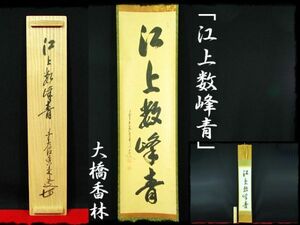 江上数峰青
江上数峰青
「江上数峰青」
大橋香林
江上数峰青